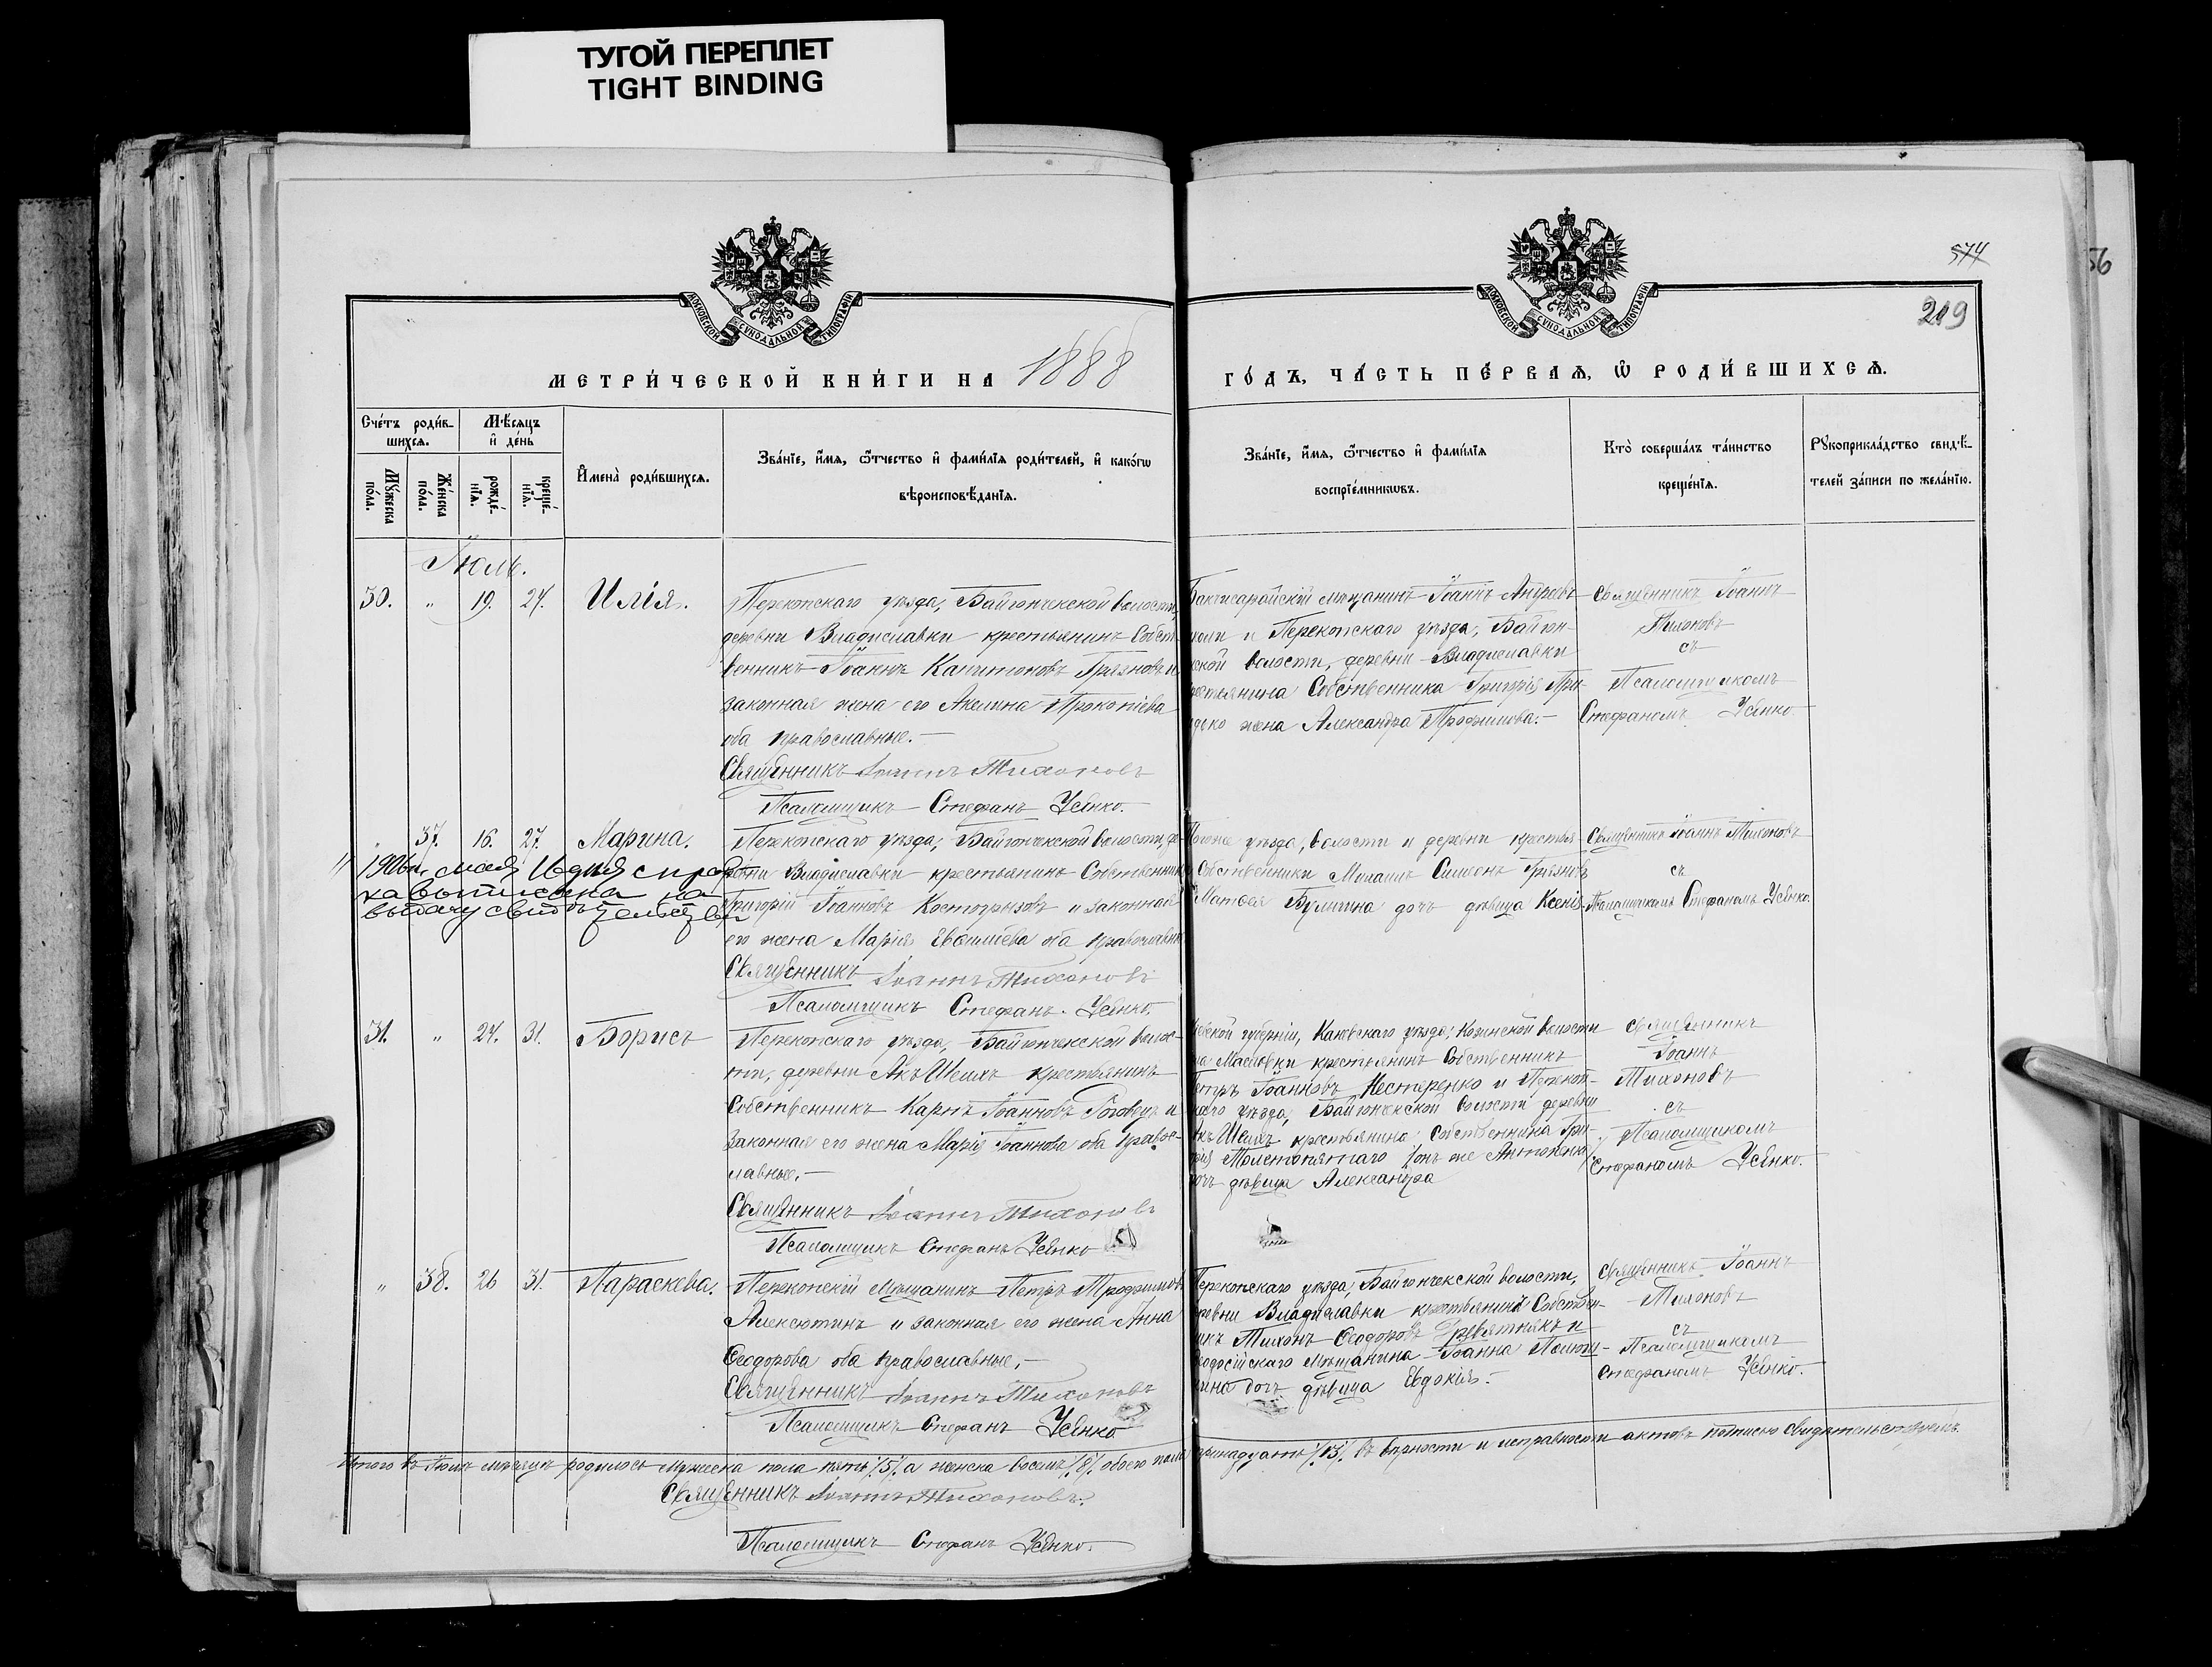 ТУГОЙ ПЕРЕПЛЕТ
TIGHT BINDING
574
56
219
МОСКОВСКОЙ СѴНОДАЛЬНОЙ ТИПОГРАФІИ
МОСКОВСКОЙ СѴНОДАЛЬНОЙ ТИПОГРАФІИ
МЕТРИ́ЧЕСКОЙ КНИ́ГИ НА 1888
ГО́ДЪ, ЧА́СТЬ ПЕ́РВАѦ, Ѡ РОДИ́ВШИХСѦ.
Сче́тъ роди́в-
шихсѧ.
Мѣсѧцъ
и҆ де́нь
Мꙋ́жеска по́ла.
Же́нска по́ла.
рожде́-
нїѧ.
креще́-
нїѧ.
И҆мена̀ роди́вшихсѧ.
Зва́нїе, и҆́мѧ, ѻ҆́тчество и҆ фами́лїѧ роди́телей, и҆ како́гѡ
вѣроисповѣ́данїѧ.
Зва́нїе, и҆́мѧ, ѻ҆́тчество и҆ фами́лїѧ
воспрїе́мникѡвъ.
Кто̀ соверша́лъ та́инство
креще́нїѧ.
Рꙋкоприкла́дство свидѣ́-
телей за́писи по жела́нїю.
Іюль.
30. " 19. 24. Илія.
Перекопскаго уѣзда, Байгончекской волости,
деревни Владиславки крестьянинъ Собст-
венникъ Іоаннъ Капитоновъ Грязновъ и
законная жена его Акелина Прокопіева
оба православные.—
Священникъ Іоаннъ Тихоновъ
Псаломщикъ Стефанъ Усенко.
Бахчисарайскій мѣщанинъ Іоаннъ Андреевъ
и Перекопскаго уѣзда, Байгон-
ской волости, деревни Владиславки
Собственника Григорія Гри-
жена Александра Трофимова.—
Священникъ Іоаннъ
Тихоновъ
съ
Псаломщикомъ
Стефаномъ Усенко
" 37. 16. 27. Марина.
1906 г. мая 16 дня справ
ка выписана на
выдачу свидѣтельства
Перекопскаго уѣзда, Байгончекской волости, де-
ревни Владиславки крестьянинъ Собственникъ
Григорій Іоанновъ Костогрызовъ и законная
его жена Марія Евфиміева оба православн
Священникъ Іоаннъ Тихоновъ
Псаломщикъ Стефанъ Усенко.
Тогоже уѣзда, волости и деревни крестья-
Собственники Михаилъ Симеонъ Грязновъ
Матфея Булыгина дочь дѣвица Ксенія.
Священникъ Іоаннъ Тихоновъ
съ
Псаломщикомъ Стефаномъ Усенко.
31. " 24. 31. Борисъ
Перекопскаго уѣзда, Байгончекской волос-
ти, деревни Акъ Шеихъ крестьянинъ
Собственникъ Карпъ Іоанновъ Роговецъ и
законная его жена Марія Іоаннова оба право-
славные.—
Священникъ Іоаннъ Тихоновъ
Псаломщикъ Стефанъ Усенко
губерніи, Каневскаго уѣзда, Козинской волости
Масловки крестьянинъ Собственникъ
Петръ Іоанновъ Нестеренко и Перекоп-
скаго уѣзда, Байгончекской волости деревни
Акъ Шеихъ крестьянина Собственника Гри-
горія онъ же Антоненко
дочь дѣвица Александра
Священникъ
Іоаннъ
Тихоновъ
съ
Псаломщикомъ
Стефаномъ Усенко.
" 38. 26 31. Параскева.
Перекопскій Мѣщанинъ Петръ Трофимовъ
Алексютинъ и законная его жена Анна
Ѳеодорова оба православные.—
Священникъ Іоаннъ Тихоновъ
Псаломщикъ Стефанъ Усенко
Перекопскаго уѣзда, Байгончекской волости,
деревни Владиславки крестьянинъ Собствен-
никъ Тихонъ Ѳеодоровъ Древятникъ и
Ѳеодосійскаго Мѣщанина Іоанна
дочь дѣвица Евдокія.—
Священникъ Іоаннъ
Тихоновъ
съ
Псаломщикомъ
Стефаномъ Усенко.
Итого въ Іюлѣ мѣсяцѣ родилось Мужеска пола пять /5/ а женска восемь /8/ обоего пола тринадцать /13/. въ вѣрности и исправности актовъ подписью свидѣтельствуемъ.
Священникъ Іоаннъ Тихоновъ.
Псаломщикъ Стефанъ Усенко.